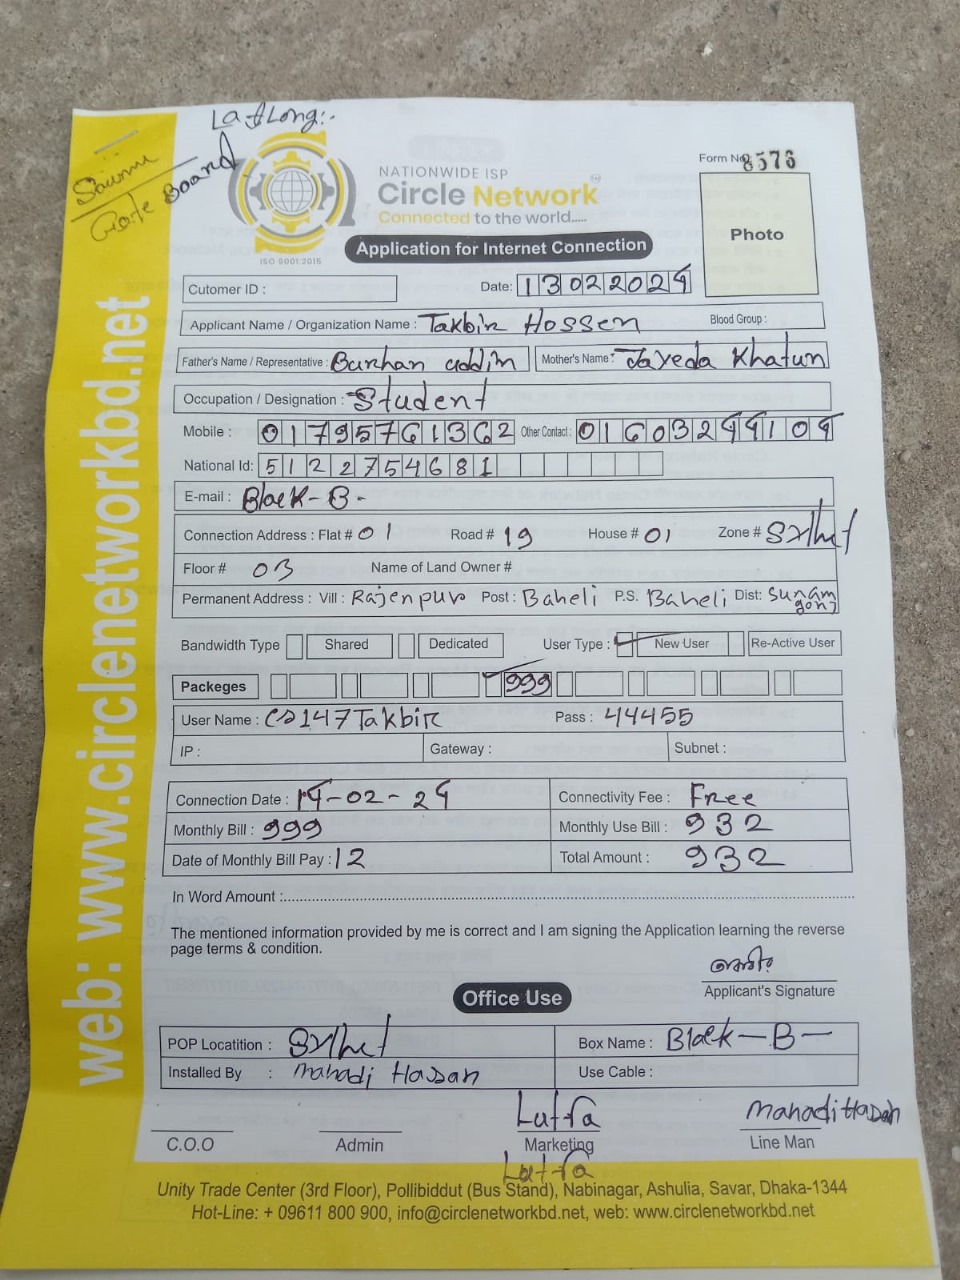 Lat Long:-
Gate Board
NATIONWIDE ISP
Circle Network
Connected to the world.....
ISO 9001:2015
Form No 8576
Photo
Application for Internet Connection
Cutomer ID :
Date: 13022024
Applicant Name / Organization Name : Takbir Hossen Blood Group :
Father's Name / Representative : Burhan uddin Mother's Name : Jayeda Khatun
Occupation / Designation : Student
Mobile : 01795761362 Other Contact : 01603244104
National Id: 5122754681
E-mail : Block-B-
Connection Address : Flat # 01 Road # 19 House # 01 Zone # Sylhet
Floor # 03 Name of Land Owner #
Permanent Address : Vill : Rajenpur Post : Baheli P.S. Baheli Dist: Sunamgonj
Bandwidth Type Shared Dedicated User Type : New User Re-Active User
Packeges 999
User Name : CD147Takbir Pass : 44455
IP : Gateway : Subnet :
Connection Date : 14-02-24 Connectivity Fee : Free
Monthly Bill : 999 Monthly Use Bill : 932
Date of Monthly Bill Pay : 12 Total Amount : 932
In Word Amount :
The mentioned information provided by me is correct and I am signing the Application learning the reverse
page terms & condition.
Applicant's Signature
Office Use
POP Locatition : Sylhet Box Name : Block-B-
Installed By : Mahadi Hasan Use Cable :
Lutfa Mahadi Hasan
C.O.O Admin Marketing Line Man
Lutfa
Unity Trade Center (3rd Floor), Pollibiddut (Bus Stand), Nabinagar, Ashulia, Savar, Dhaka-1344
Hot-Line: + 09611 800 900, info@circlenetworkbd.net, web: www.circlenetworkbd.net
web: www.circlenetworkbd.net